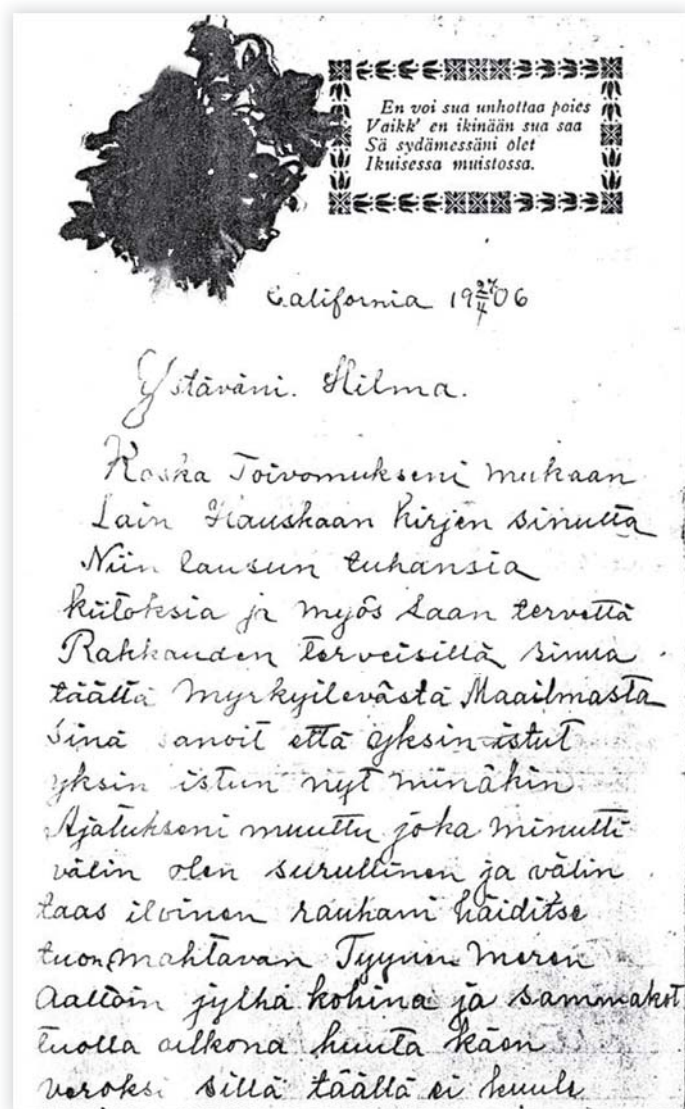 En voi sua unhottaa poies
Vaikk' en ikinään sua saa
Sä sydämessäni olet
Ikuisessa muistossa.
California 19 27/4 06
Ystäväni. Hilma.
Koska Toivomukseni mukaan
Sain Hauskaan Kirjen sinulta
Niin lausun tuhansia
kiitoksia ja myös Saan tervettä
Rakkauden terveisillä sinua
täältä Myrkyilevästä Maailmasta
Sinä sanoit että yksin istut
yksin istun nyt minäkin
Ajatukseni muuttu joka minutti
välin olen surullinen ja välin
taas iloinen rauhani häiditse
tuon mahtavan Tyynen meren
Aaltoin jylhä kohina ja sammakot
tuolla ulkona huuta käen
veroksi sillä täällä ei kuule